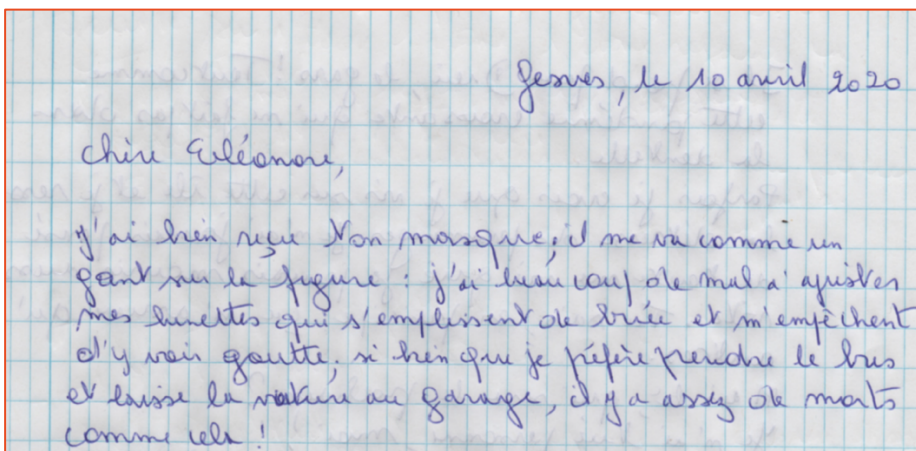 Gesves, le 10 avril 2020
Chère Eléonore,
j'ai bien reçu ton masque, il me va comme un
gant sur la figure : j'ai beaucoup de mal à ajuster
mes lunettes qui s'emplissent de buée et m'empêchent
d'y voir goutte, si bien que je préfère prendre le bus
et laisse la voiture au garage, il y a assez de morts
comme cela !